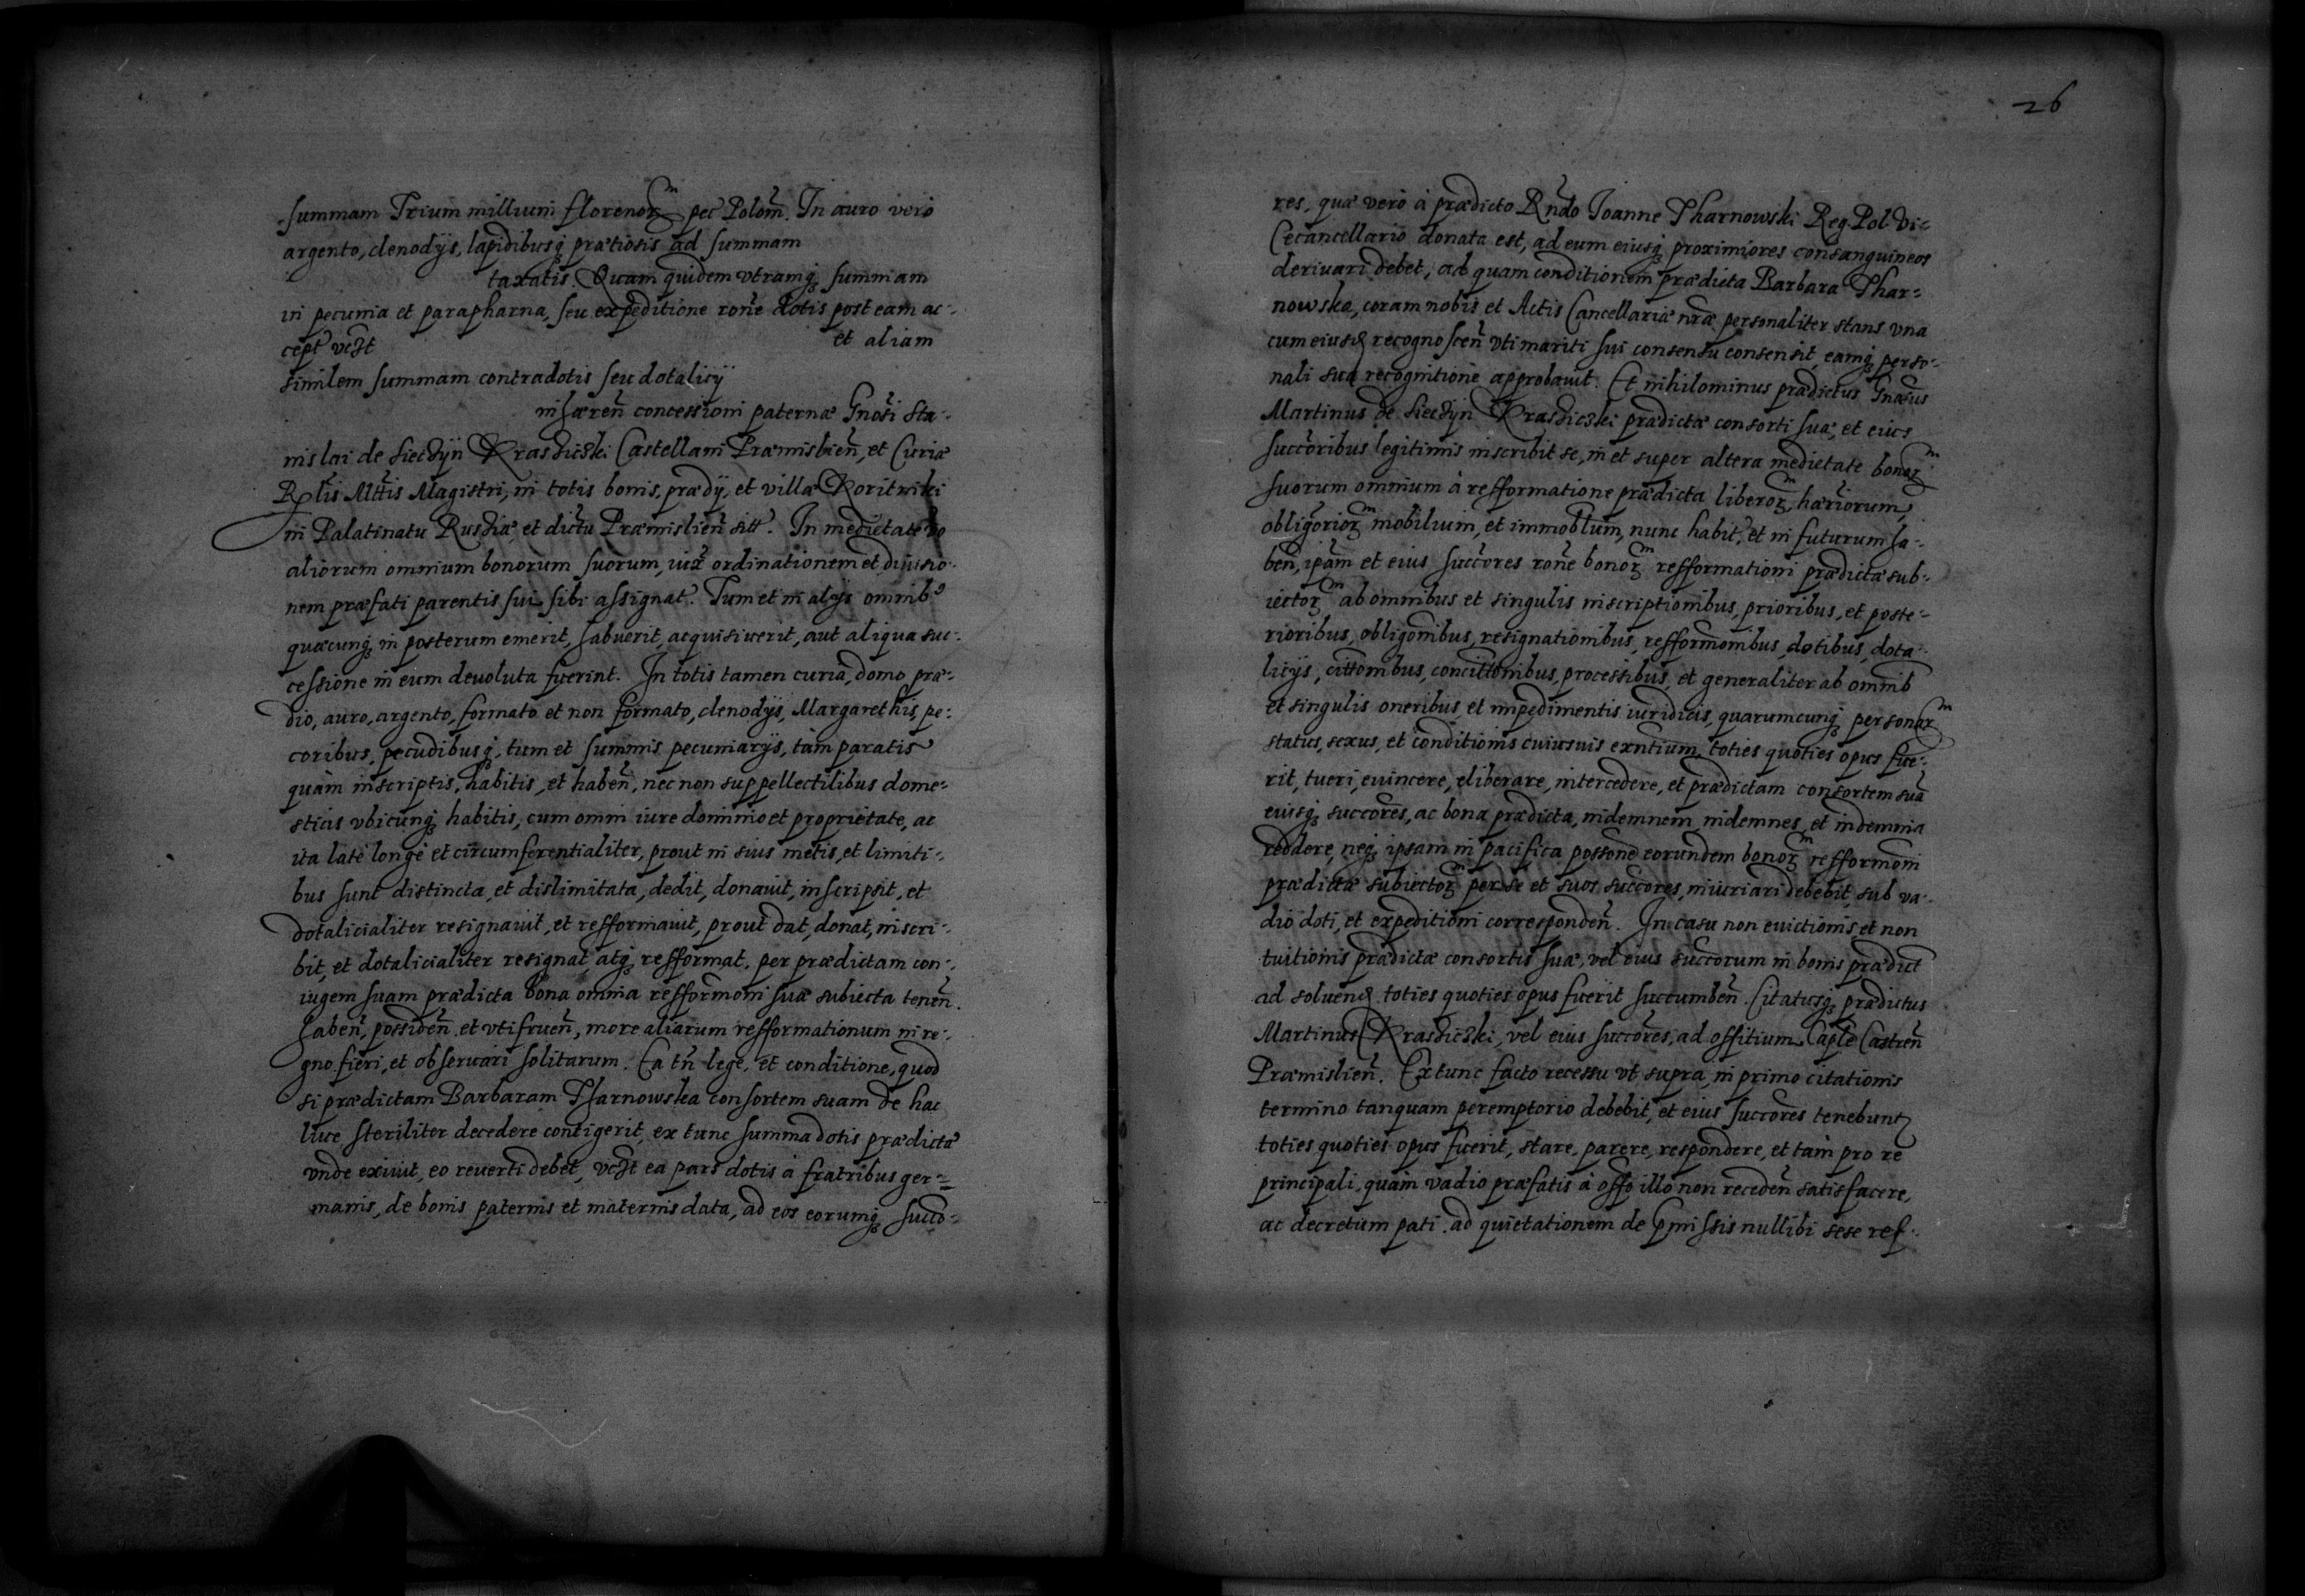 summam Trium millium florenorꝫ pec Polon̄. In auro vero
argento, clenodijs, lapidibusq prætiosis ad summam
taxatis. Quam quidem vtramq summam
in pecunia et parapharna, seu expeditione rōne dotis post eam ac-
cept vcꝫt et aliam
similem summam contradotis seu dotalicÿ
inhæren̄ concessioni paternæ Gnōsi Sta-
nislai de Siecÿn Krasiczki Castellani Præmislien̄, et Curiæ
Rlis Mttis Magistri, in totis bonis, prædÿ, et villæ Koritniki
in Palatinatu Russiæ, et dictu Præmislien̄ sitt. In medietate vo
aliorum omnium bonorum suorum, iuxt ordinationem et diuisio-
nem præfati parentis sui sibi assignat. Tum et in alijs omnibꝰ
quæcunq in posterum emerit, habuerit, acquisiuerit, aut aliqua suc-
cessione in eum deuoluta fuerint. In totis tamen curia, domo præ-
dio, auro, argento, formato et non formato, clenodijs, Margarethis, pe-
coribus, pecudibusq, tum et summis pecuniarijs, tàm paratis
quàm inscriptis, habitis, et haben̄, nec non suppellectilibus dome-
sticis vbicunq habitis, cum omni iure dominio et proprietate, ac
ita latè longè et circumferentialiter, prout in suis metis, et limiti-
bus sunt distincta, et dislimitata, dedit, donauit, inscripsit, et
dotalicialiter resignauit, et refformauit, prout dat, donat, inscri-
bit, et dotalicialiter resignat atq refformat, per prædictam con-
iugem suam prædicta bona omnia refformōni suæ subiecta tenen̄.
haben̄, possiden̄ et vtifruen̄, more aliarum refformationum in re-
gno fieri, et obseruari solitarum. Ea tn̄ lege, et conditione, quod
si prædictam Barbaram Tharnowska consortem suam de hac
luce steriliter decedere contigerit, ex tunc summa dotis prædictæ
vnde exiuit, eo reuerti debet, vcꝫt ea pars dotis à fratribus ger-
manis, de bonis paternis et maternis data, ad eos eorumq succō-
26
res, quæ verò à prædicto Rn̄do Ioanne Tharnowski Reg. Pol. Vi-
cecancellario donata est, ad eum eiusq proximiores consanguineos
deriuari debet, ad quam conditionem prædicta Barbara Thar-
nowska, coram nobis et Actis Cancellariæ nrǣ personaliter stans vna
cum eiusd recognoscen̄ vti mariti sui consensu consensit, eamq perso-
nali sua recognitione approbauit. Et nihilominus prædictus Gnōsus
Martinus de Siecÿn Krasiczki prædictæ consorti suæ, et eius
succōribus legitimis inscribit se, in et super altera medietate bonorꝫ
suorum omnium à refformatione prædicta liberorꝫ, hæriorum,
obligōriorꝫ mobilium, et immoblum, nunc habit, et in futurum ha-
ben̄, ipām et eius succōres rōne bonorꝫ refformationi prædictæ sub-
iectorꝫ ab omnibus et singulis inscriptionibus, prioribus, et poste-
rioribus, obligōnibus, resignationibus, refformōnibus, dotibus, dota-
licijs, cittōnibus, concittōnibus, processibus, et generaliter ab omnib
et singulis oneribus, et impedimentis iuridicis, quarumcunq personarꝫ
status, sexus, et conditionis cuiusuis exn̄tium, toties quoties opus fue-
rit, tueri, euincere, eliberare, intercedere, et prædictam consortem suā
eiusq succōres, ac bona prædicta, indemnem, indemnes, et indemnia
reddere, neq ipsam in pacifica possōne eorundem bonorꝫ refformōni
prædictæ subiectorꝫ per se et suos succōres, iniuriari debebit, sub va-
dio doti, et expeditioni corresponden̄. In casu non euictionis, et non
tuitionis prædictæ consortis suæ, vel eius succōrum in bonis prædict
ad soluend toties quoties opus fuerit succumben̄. Citatusq prædictus
Martinus Krasiczki, vel eius succōres, ad offitium Caple Castren̄
Præmislien̄. Ex tunc facto recessu vt supra, in primo citationis
termino tanquam peremptorio debebit, et eius succōres tenebunt
toties quoties opus fuerit, stare, parere, respondere, et tàm pro re
principali, quàm vadio præfatis à offo illo non receden̄ satisfacere,
ac decretum pati, ad quietationem de pmissis nullibi sese ref-